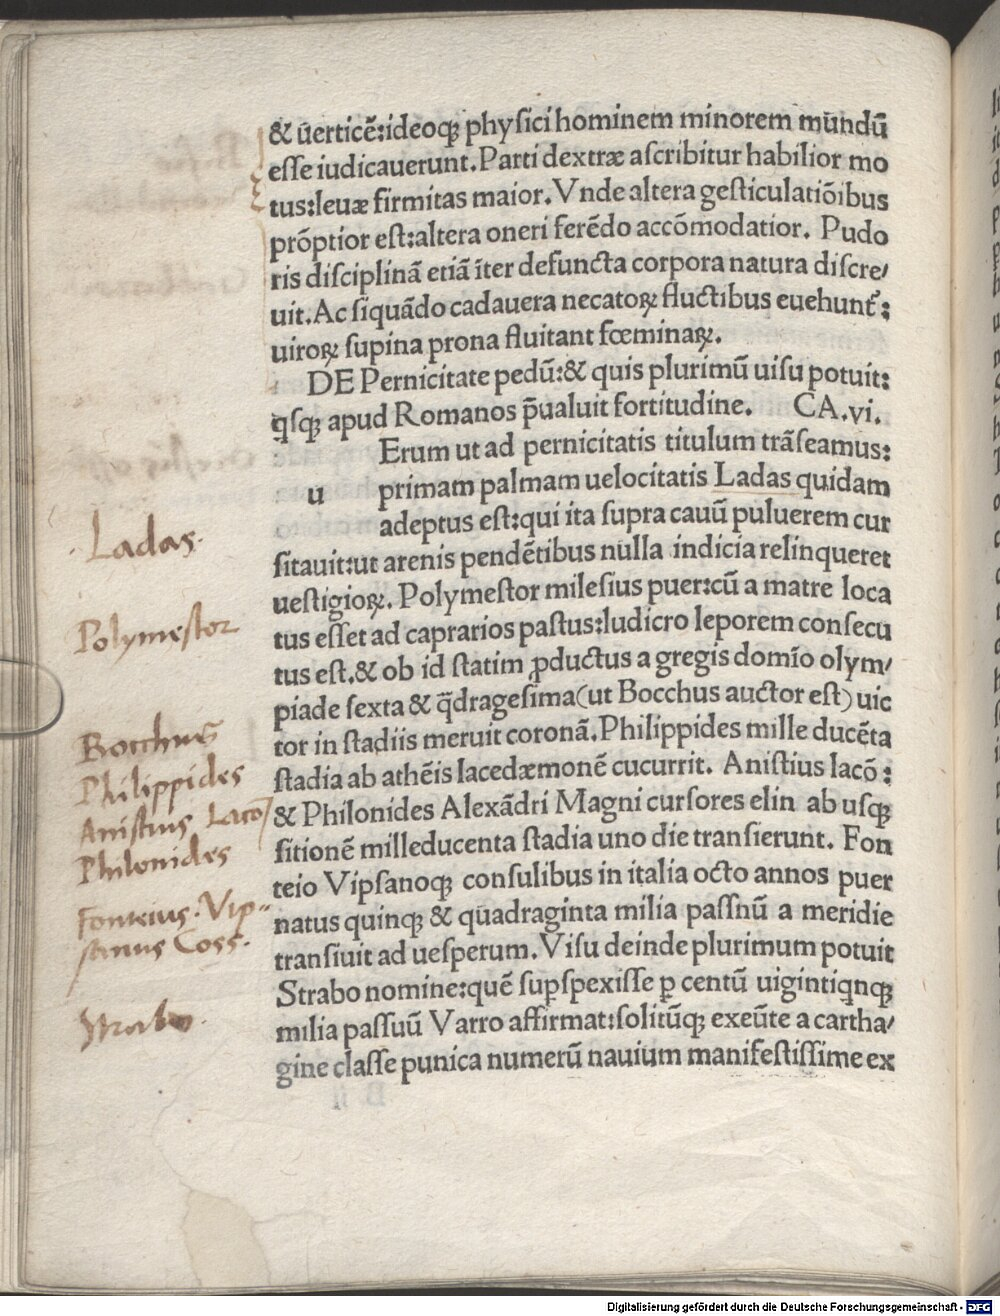 & uerticẽ:ideoqꝫ physici hominem minorem mundũ
esse iudicauerunt.Parti dextræ ascribitur habilior mo
tus:leuæ firmitas maior. Vnde altera gesticulatiõibus
prõptior est:altera oneri ferẽdo accõmodatior. Pudo
ris disciplinã etiã ĩter defuncta corpora natura discre/
uit.Ac siquãdo cadauera necatoꝝ fluctibus euehunt᷑:
uiroꝝ supina prona fluitant fœminaꝝ.
DE Pernicitate pedũ:& quis plurimũ uisu potuit:
qsqꝫ apud Romanos p̃ualuit fortitudine. CA.vi.
Erum ut ad pernicitatis titulum trãseamus:
u primam palmam uelocitatis Ladas quidam
adeptus est:qui ita supra cauũ puluerem cur
sitauit:ut arenis pendẽtibus nulla indicia relinqueret
uestigioꝝ. Polymestor milesius puer:cũ a matre loca
tus esset ad caprarios pastus:ludicro leporem consecu
tus est.& ob id statim ꝓductus a gregis domĩo olym/
piade sexta & q̃dragesima(ut Bocchus auctor est) uic
tor in stadiis meruit coronã.Philippides mille ducẽta
stadia ab athẽis lacedæmonẽ cucurrit. Anistius lacõ :
& Philonides Alexãdri Magni cursores elin ab usqꝫ
sitionẽ milleducenta stadia uno die transierunt. Fon
teio Vipsanoqꝫ consulibus in italia octo annos puer
natus quinqꝫ & quadraginta milia passnũ a meridie
transiuit ad uesperum.Visu deinde plurimum potuit
Strabo nomine:quẽ suꝑspexisse ꝑ centũ uigintiqnqꝫ
milia passuũ Varro affirmat:solitũqꝫ exeũte a cartha/
gine classe punica numerũ nauium manifestissime ex
Ladas.
Polymestor
Bocchus
Philippides
Anistius Laco
Philonides
Fonteius. Vip-
sanus Coss.
Strabo.
Digitalisierung gefördert durch die Deutsche Forschungsgemeinschaft - DFG